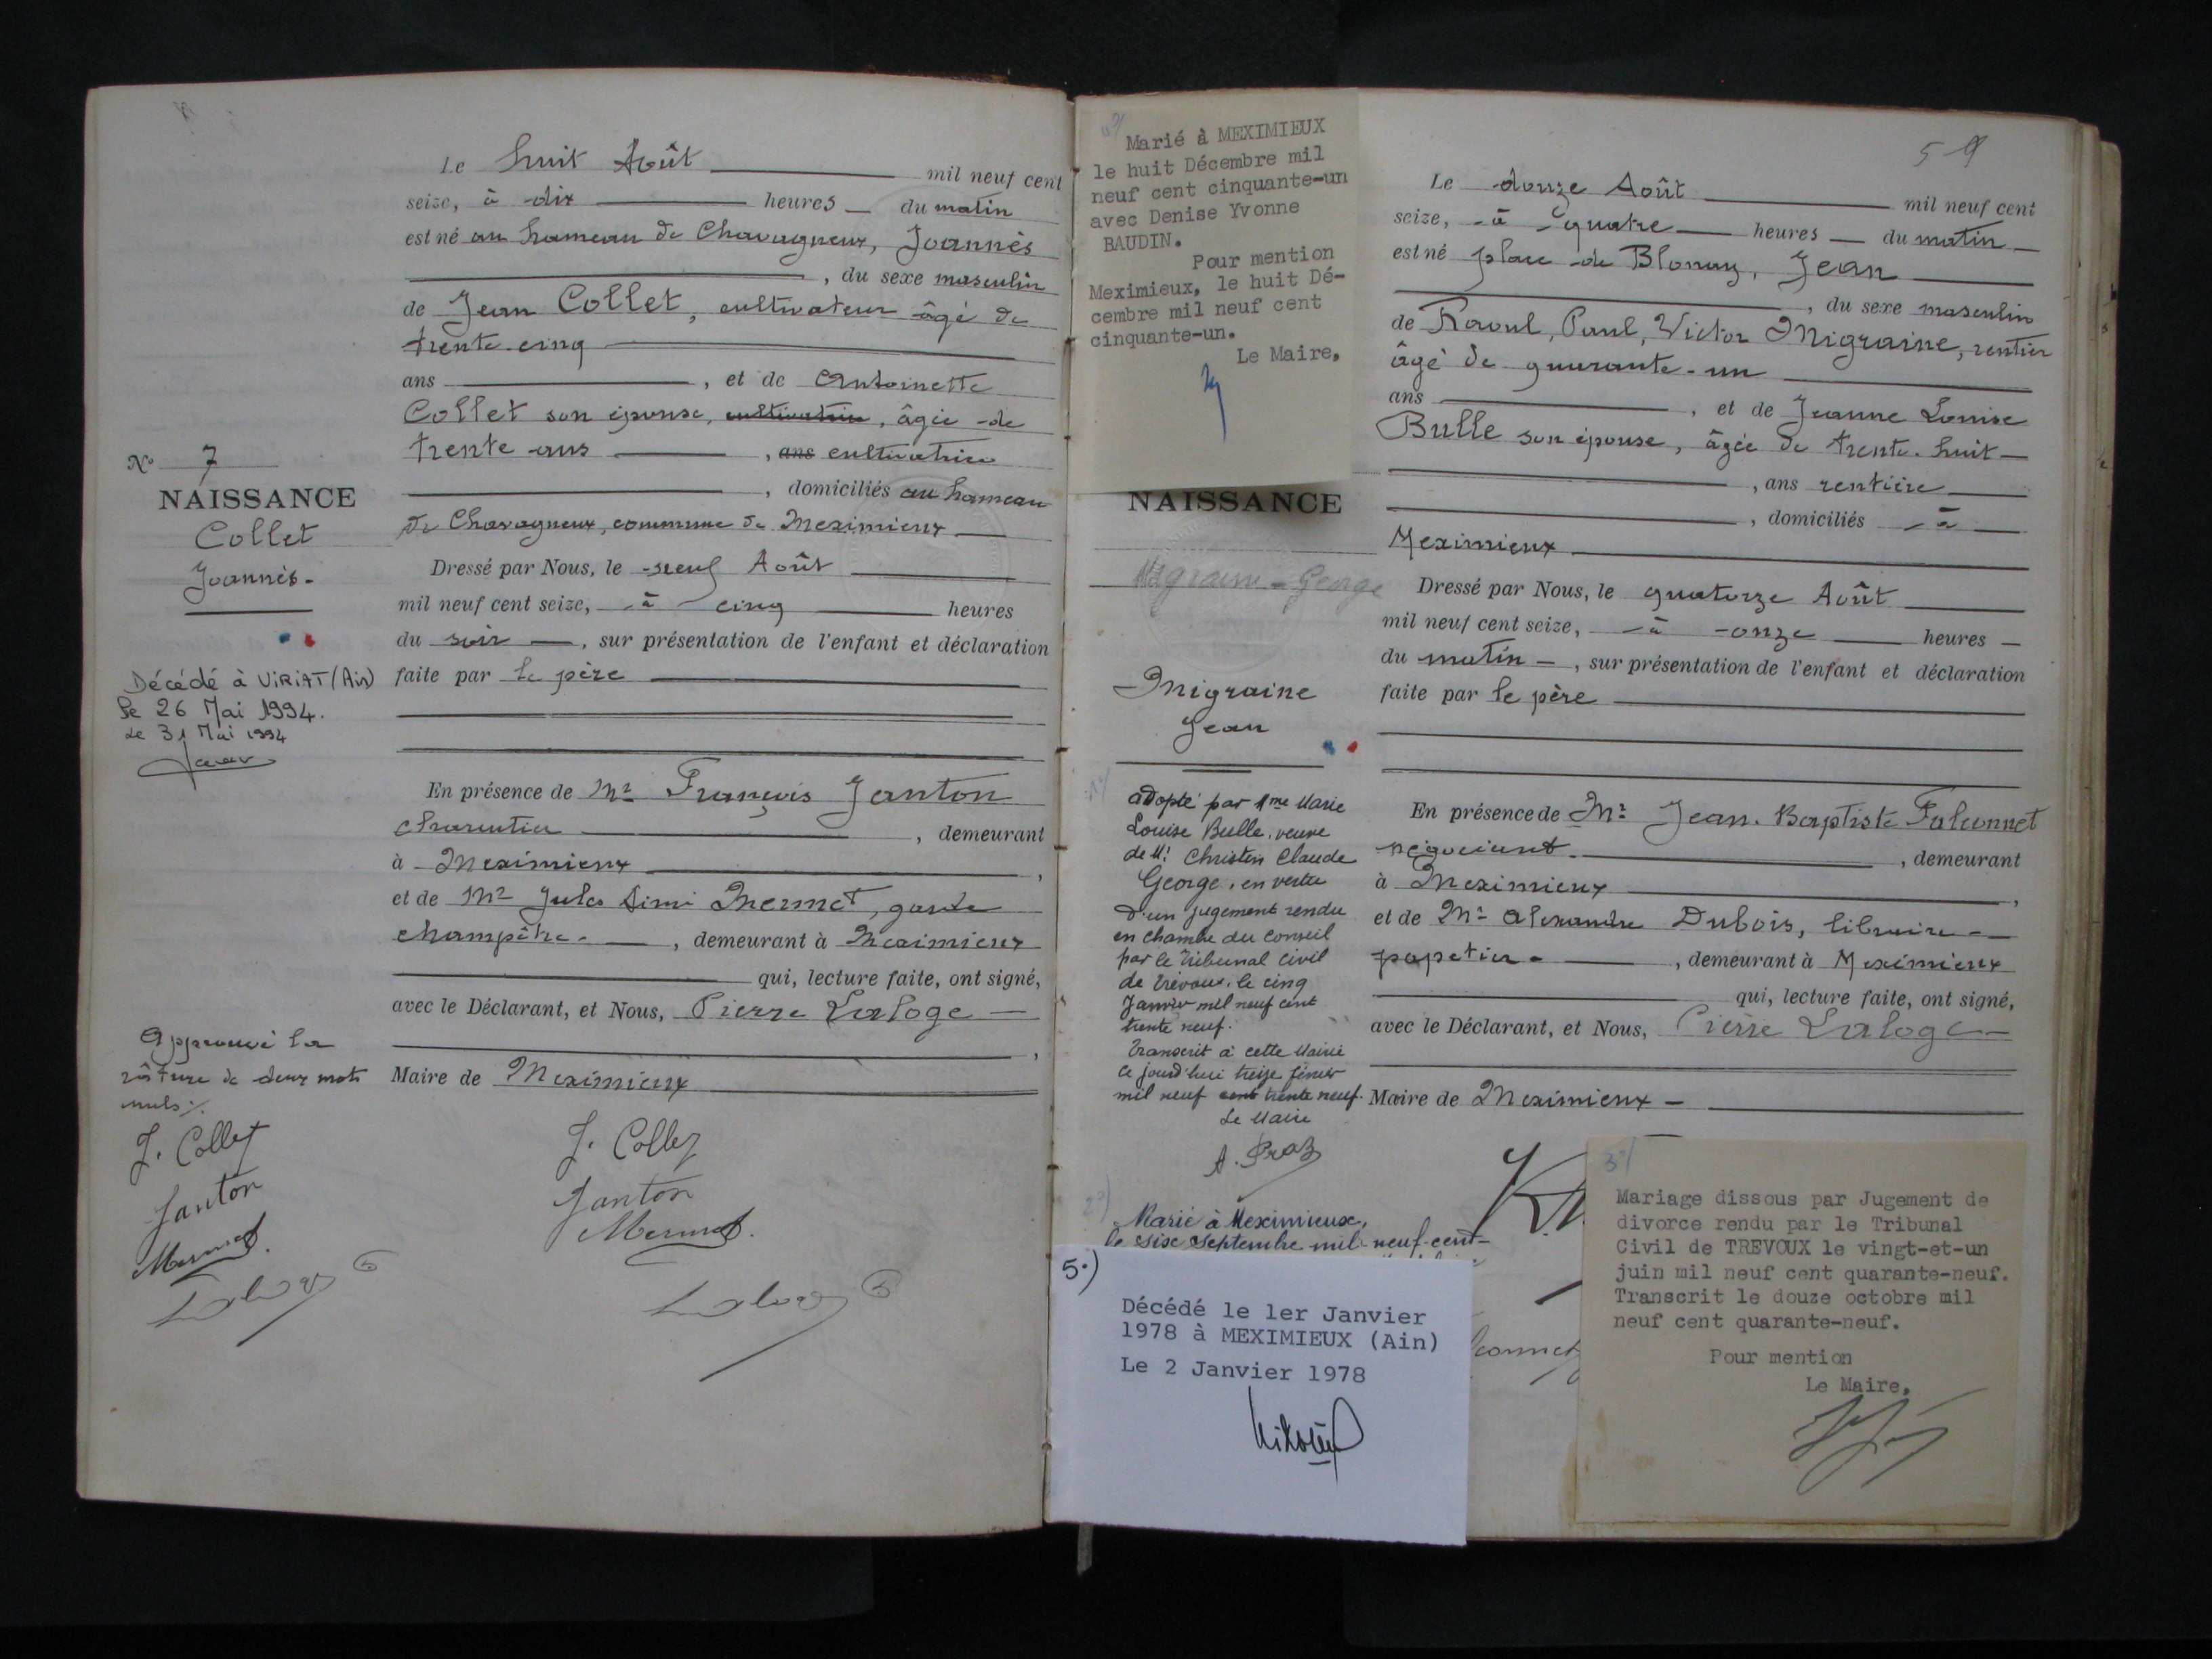 Le huit Août mil neuf cent
seize, à dix heures du matin
est né au hameau de Chavagneux, Joannès
, du sexe masculin
de Jean Collet, cultivateur âgé de
trente-cinq
ans , et de Antoinette
Collet son épouse, cultivatrice, âgée de
trente ans , ans cultivatrice
, domiciliés au hameau
de Chavagneux, commune de Meximieux
Dressé par Nous, le neuf Août
mil neuf cent seize, à cinq heures
du soir , sur présentation de l'enfant et déclaration
faite par le père
En présence de Mr François Janton
charpentier , demeurant
à Meximieux ,
et de Mr Jules Mermet, garde
champêtre. , demeurant à Meximieux
qui, lecture faite, ont signé,
avec le Déclarant, et Nous, Pierre Laloge
,
Maire de Meximieux
J. Collet
Janton
Mermet
No 7
NAISSANCE
Collet
Joannès.
Décédé à VIRIAT (Ain)
le 26 Mai 1994.
Le 31 Mai 1994
Approuvé la
râture de deux mots
nuls %.
J. Collet
Janton
Mermet
Marié à MEXIMIEUX
le huit Décembre mil
neuf cent cinquante-un
avec Denise Yvonne
BAUDIN.
Pour mention
Meximieux, le huit Dé-
cembre mil neuf cent
cinquante-un.
Le Maire,
NAISSANCE
Migraine - George
Migraine
Jean
1°/
adopté par Mme Marie
Louise Bulle, veuve
de Mr Christin Claude
George, en vertu
d'un jugement rendu
en chambre du conseil
par le tribunal civil
de Trévoux, le cinq
Janvier mil neuf cent
trente neuf.
Transcrit à cette Mairie
ce jourd'hui treize février
mil neuf cent trente neuf.
Le Maire
A. Praz
2°)
Marié à Meximieux,
le six septembre mil neuf-cent-
5°)
Décédé le 1er Janvier
1978 à MEXIMIEUX (Ain)
Le 2 Janvier 1978
59
Le douze Août mil neuf cent
seize, à quatre heures du matin
est né place de Blonay, Jean
, du sexe masculin
de Raoul, Paul, Victor Migraine, rentier
âgé de quarante-un
ans , et de Jeanne Louise
Bulle son épouse, âgée de trente-huit
, ans rentière
, domiciliés à
Meximieux
Dressé par Nous, le quatorze Août
mil neuf cent seize, à onze heures
du matin , sur présentation de l'enfant et déclaration
faite par le père
En présence de Mr Jean-Baptiste Falconnet
négociant. , demeurant
à Meximieux ,
et de Mr Alexandre Dubois, libraire
papetier. , demeurant à Meximieux
qui, lecture faite, ont signé,
avec le Déclarant, et Nous, Pierre Laloge
Maire de Meximieux
3°/
Mariage dissous par Jugement de
divorce rendu par le Tribunal
Civil de TREVOUX le vingt-et-un
juin mil neuf cent quarante-neuf.
Transcrit le douze octobre mil
neuf cent quarante-neuf.
Pour mention
Le Maire,